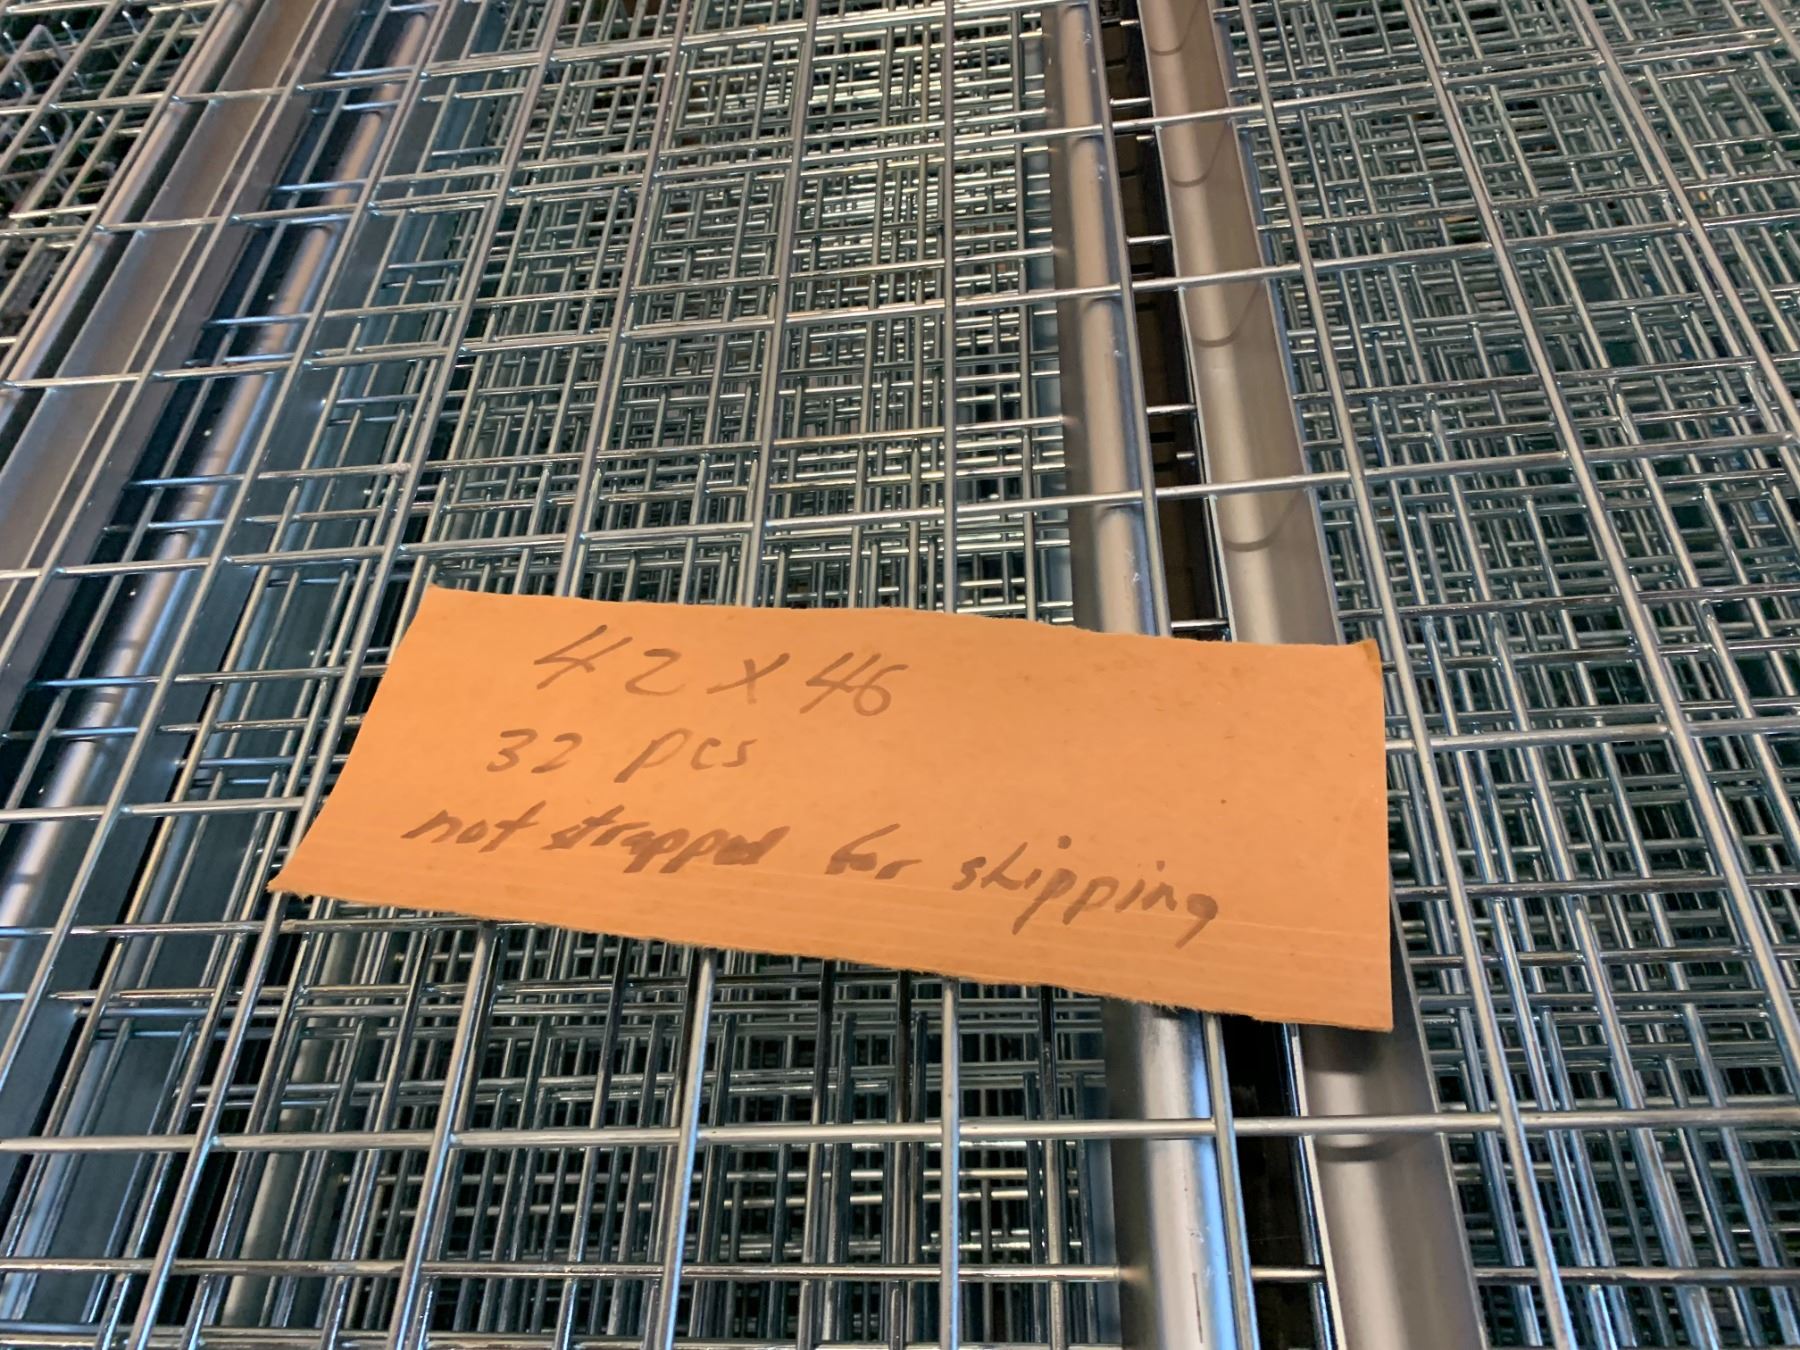 42 x 46
32 pcs
not strapped for shipping